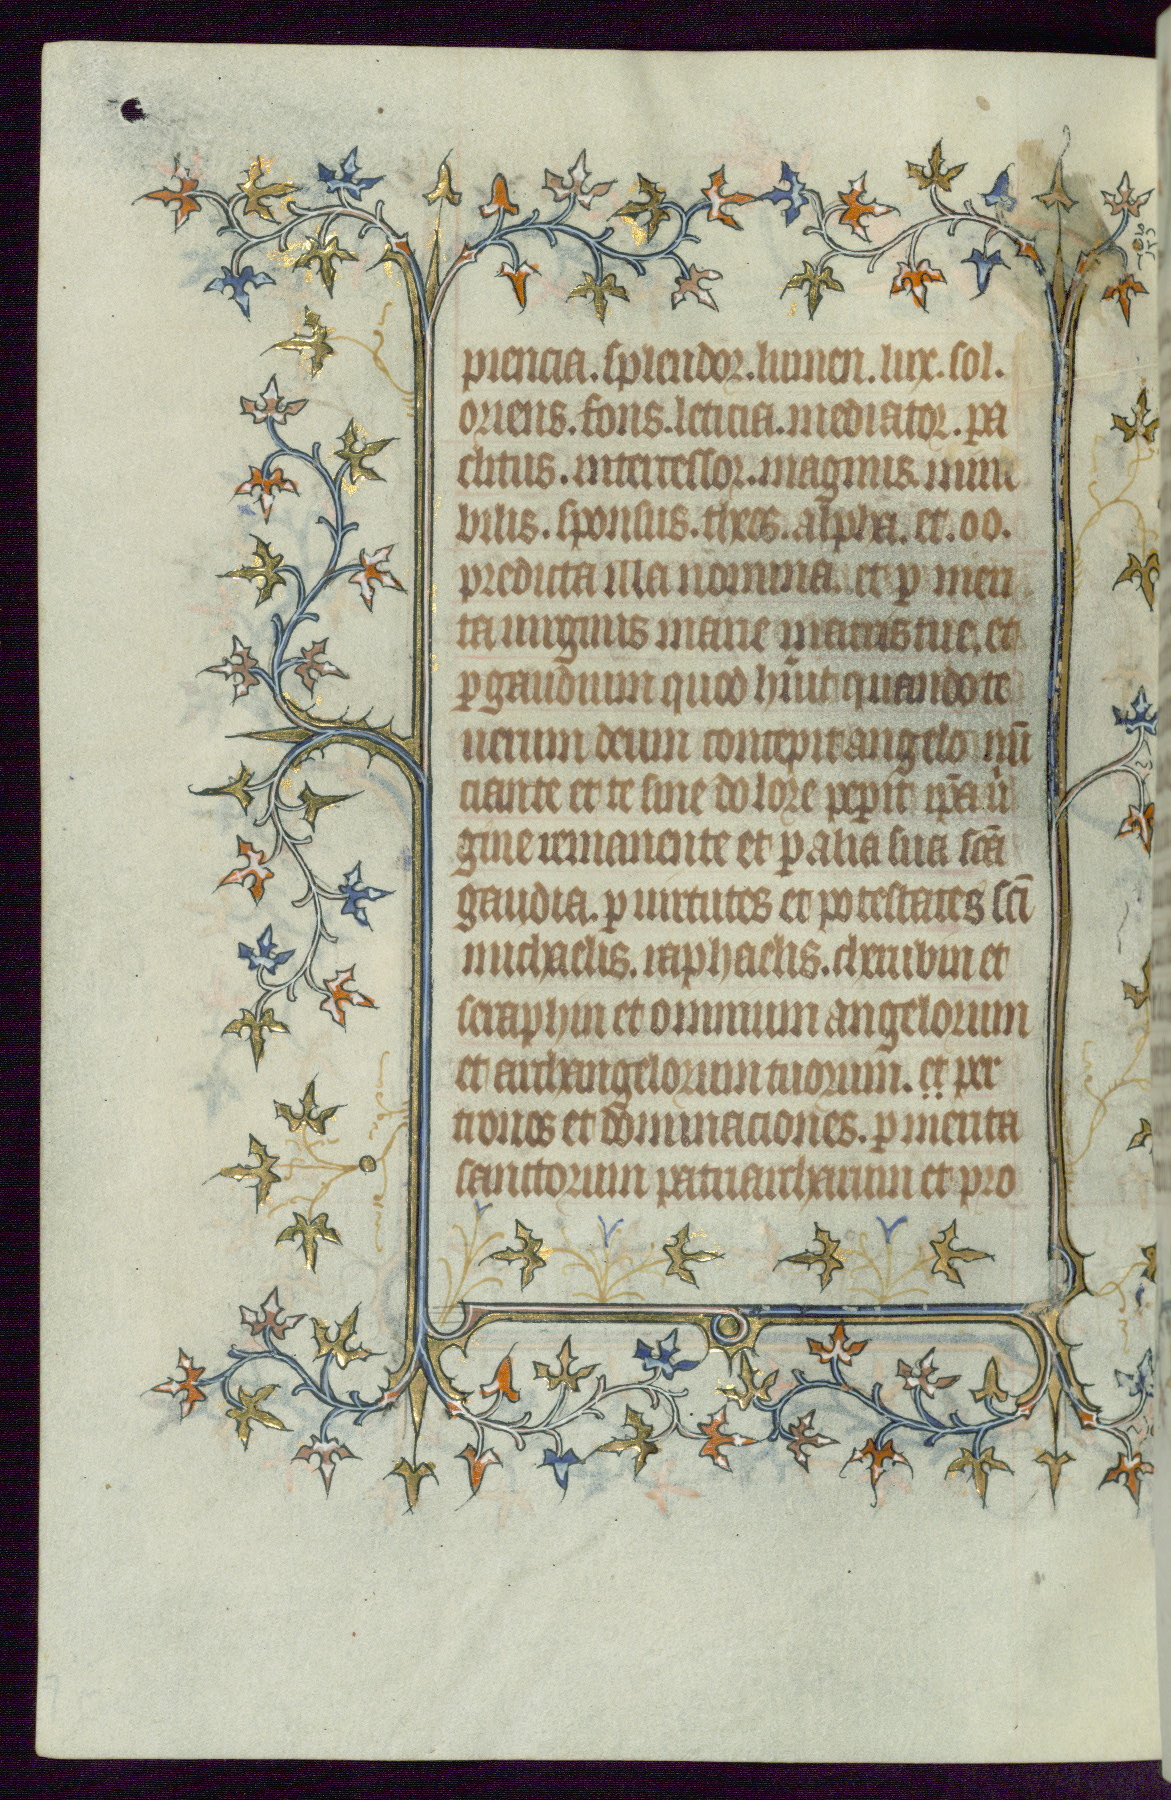 piencia. splendor. lumen. lux. sol.
oriens. fons. leticia. mediator. pa
clitus. intercessor. magnus. inuin
bilis. sponsus. theos. alpha. et. oo.
predicta illa nomina. et p meri
ta uirginis marie matris tue. et
p gaudium quod huit quando te
uerum deum concepit angelo nūt
ciante et te sine dolore peperit ip̄a uir
gine remanente et p alia sua scā
gaudia. p uirtutes et potestates scī
michaelis. raphaelis. cherubin et
seraphin et omnium angelorum
et archangelorum tuorum. et per
tronos et dominaciones. p merita
sanctorum patriarcharum et pro